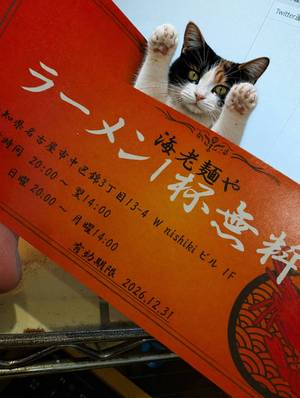 Twitter
海老麺や
ラーメン1杯無料
知県名古屋市中区錦3丁目13-4 W nishikiビル 1F
時間 20:00～翌14:00
日曜 20:00～月曜14:00
有効期限 2026.12.31